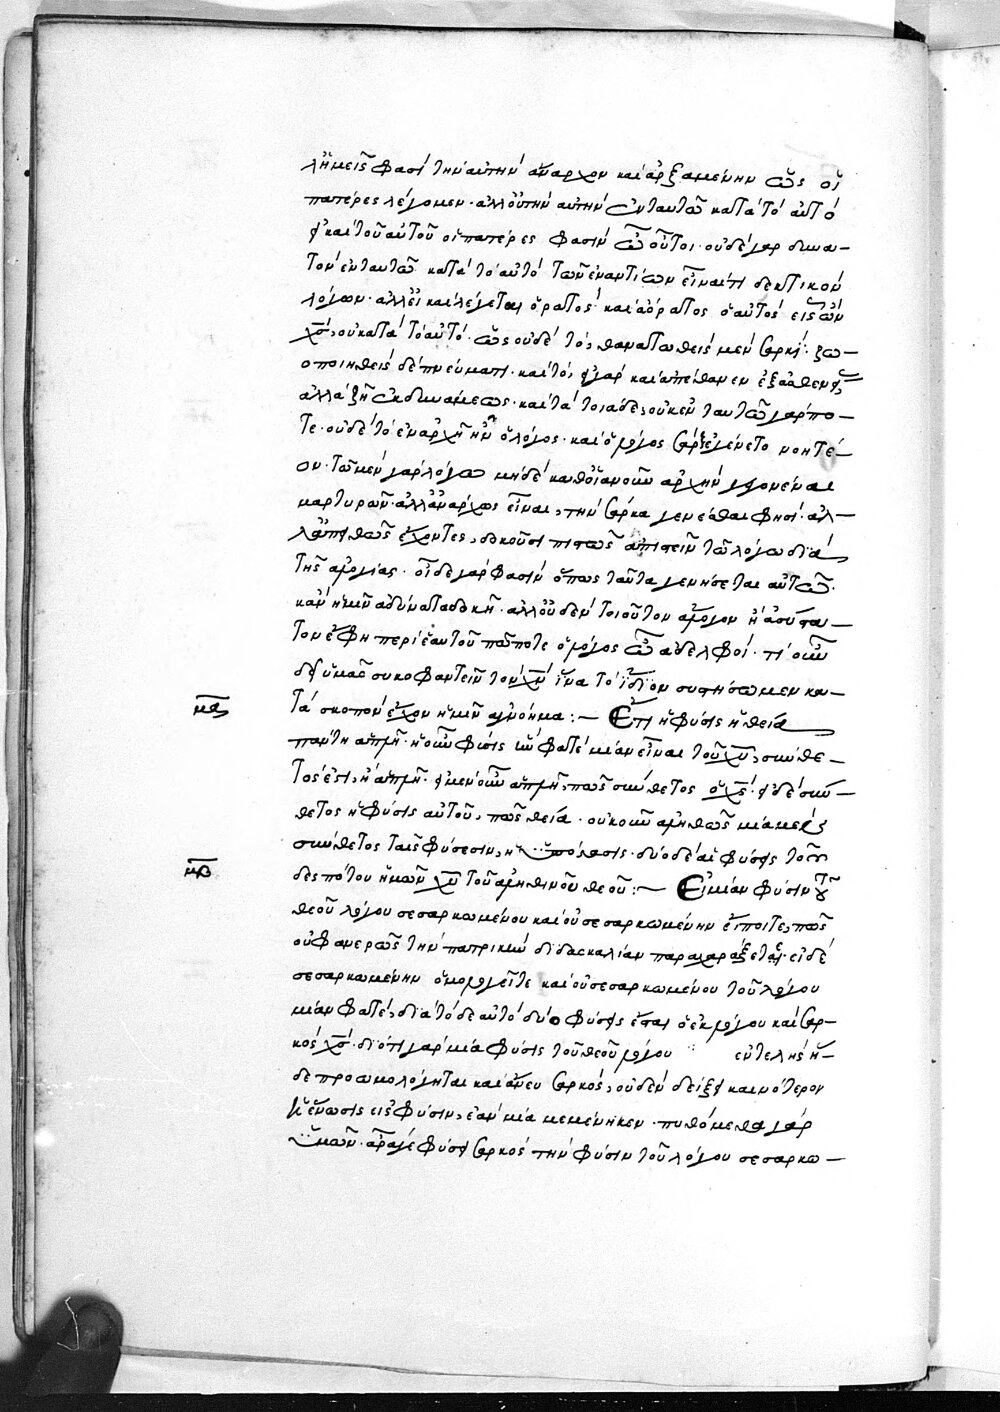 λήμεῖς φασὶ τὴν αὐτὴν ἄναρχον καὶ ἀρξαμένην ὡς οἱ
πατέρες λέγομεν· ἀλλ οὐ τὴν αὐτὴν ἐν ταυτῶ κατὰ τὸ αὐτὸ
καὶ τοῦ αὐτοῦ οἱ πατέρες φασὶν ὦ οὗτοι· οὐδὲ γὰρ δυνα-
τὸν ἐν ταυτῶ κατὰ τὸ αὐτὸ τῶν ἐναντίων εἶναί τι δεκτικὸν
λόγων· ἀλλ εἰ καὶ λέγεται ὁρατὸς καὶ ἀόρατος ὁ αὐτὸς εἷς ὢν
χς, οὐ κατὰ τὸ αὐτό· ὡς οὐδὲ τὸ, θανατωθεὶς μὲν σαρκί· ζω-
οποιηθεὶς δὲ πνεύματι· καὶ τὸ, γὰρ καὶ ἀπέθανεν ἐξ ἀσθενείας
ἀλλὰ ζῆ ἐκ δυνάμεως· καὶ τὰ τοιάδε, οὐκ ἐν ταυτῶ γάρ πο-
τε· οὐδὲ τὸ ἐν ἀρχῆ ἦν ὁ λόγος· καὶ ὁ λόγος σὰρξ ἐγένετο νοητέ-
ον· τῶ μὲν γὰρ λόγω μηδὲ καθ οἱανοῦν ἀρχὴν γεγονέναι
μαρτυρῶν· ἀλλ ἀνάρχως εἶναι, τὴν σάρκα γενέσθαι φησί· ἀλ-
λ ἀπίθως ἔχοντες, δοκοῦσι πιστῶς ἀπιστεῖν τῶ λόγω διὰ
τῆς ἀλογίας· οἱ δὲ γάρ φασιν ὅπως ταῦτα γενήσεται αὐτῶ·
κἂν ἡμῖν ἀδύνατα δοκῆ· ἀλλ οὐδὲν τοιοῦτον ἄλογον ἢ ἀσύστα-
τον ἔφη περὶ ἑαυτοῦ πώποτε ὁ λόγος ὦ ἀδελφοί· τί οὖν
δεῖ ὑμᾶς συκοφαντεῖν τὸν χν ἵνα τὸ ἴδιον συστήσωμεν κα-
μα τὰ σκοπὸν ἔχον ἡμῖν ἀγνόημα :– Ἔτι ἡ φύσις ἡ θεία
πάντη ἁπλῆ· ἡ οὖν φύσις ἣν φατὲ μίαν εἶναι τοῦ χυ, σύνθε-
τός ἐστι, ἢ ἁπλῆ· εἰ μὲν οὖν ἁπλῆ, πῶς σύνθετος ὁ χς· εἰ δὲ σύν-
θετος ἡ φύσις αὐτοῦ, πῶς θεία· οὐκοῦν ἀληθῶς μία μὲν
σύνθετος ταῖς φύσεσιν, ἡ ὑπόστασις· δύο δὲ αἱ φύσεις τοῦ
μβ δεσπότου ἡμῶν χυ τοῦ ἀληθινοῦ θεοῦ :– Εἰ μίαν φύσιν τοῦ
θεοῦ λόγου σεσαρκωμένου καὶ οὐ σεσαρκωμένην εἴποιτε, πῶς
οὐ φανερῶς τὴν πατρικὴν διδασκαλίαν παραχαράξεται· εἰ δὲ
σεσαρκωμένην ὁμολογεῖτε καὶ οὐ σεσαρκωμένου τοῦ λόγου
μίαν φατὲ, διὰ τὸ δὲ αὐτὸ δύο φύσεις ἔσται ὁ ἐκ λόγου καὶ σαρ-
κὸς χς· διότι γὰρ μία φύσις τοῦ θεοῦ λόγου ἐντελὴς ἤ-
δε προωμολόγηται καὶ ἄνευ σαρκός, οὐδὲν δείξει καινότερον
ἡ ἕνωσις εἰς φύσιν, ἐὰν μία μεμένηκεν· πυθόμεθα γὰρ
ὑμῶν· ἆρά γε φύσει σαρκὸς τὴν φύσιν τοῦ λόγου σεσαρκω-